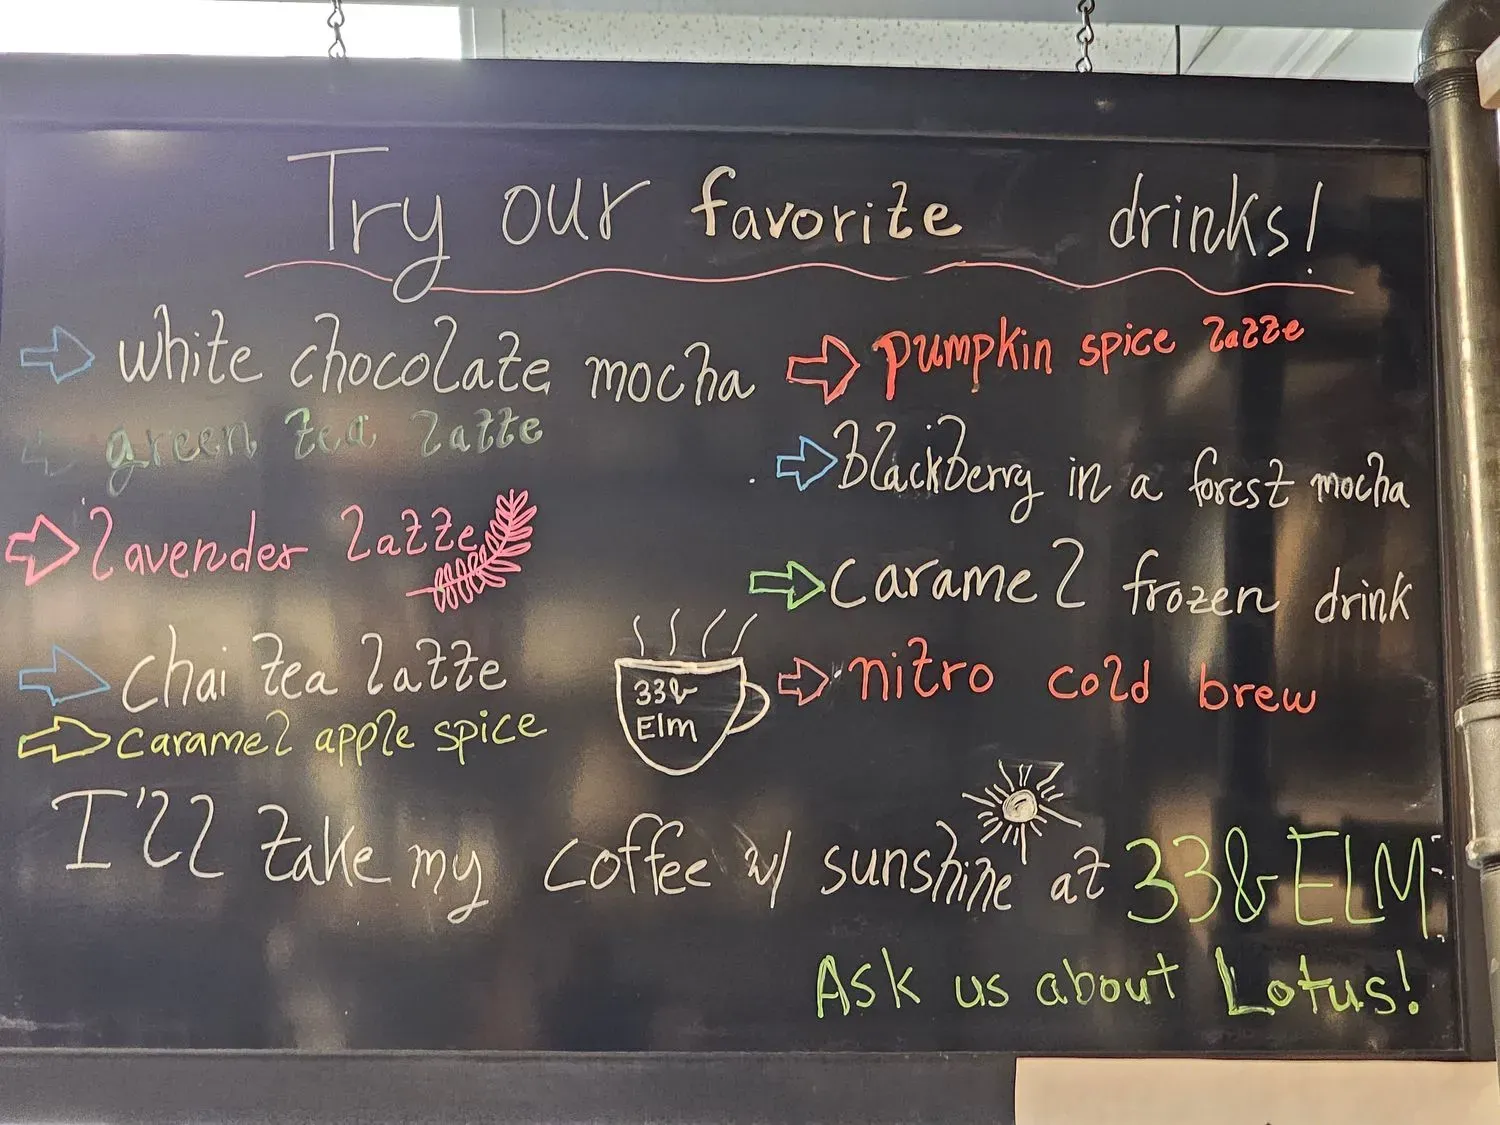 Try our favorite drinks!
white chocolate mocha
green tea latte
lavender latte
chai tea latte
caramel apple spice
pumpkin spice latte
blackberry in a forest mocha
caramel frozen drink
nitro cold brew
33&
Elm
I'll take my coffee w/ sunshine at 33& ELM
Ask us about Lotus!